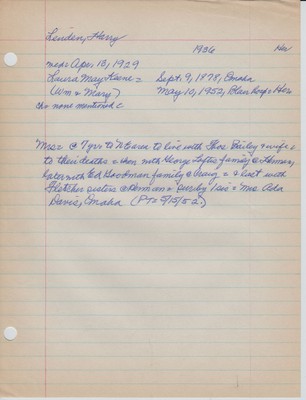 Linden, Harry
1936 Her
med= Apr. 13, 1929
Laura May Keene = Sept. 9, 1878, Omaha
(Wm & Mary) May 10, 1952, Blair hosp= Her
ch= none mentioned
Mrs= @ 7 yrs to N to live with Thos. Bailey & wife
to their deaths = then with George Loftis family @
later with Ed Goodman family @ Craig = & last with
Fletcher sisters @ Herman = surby 1 sis = Mrs Ada
Davis, Omaha (PT= 5/15/52.)